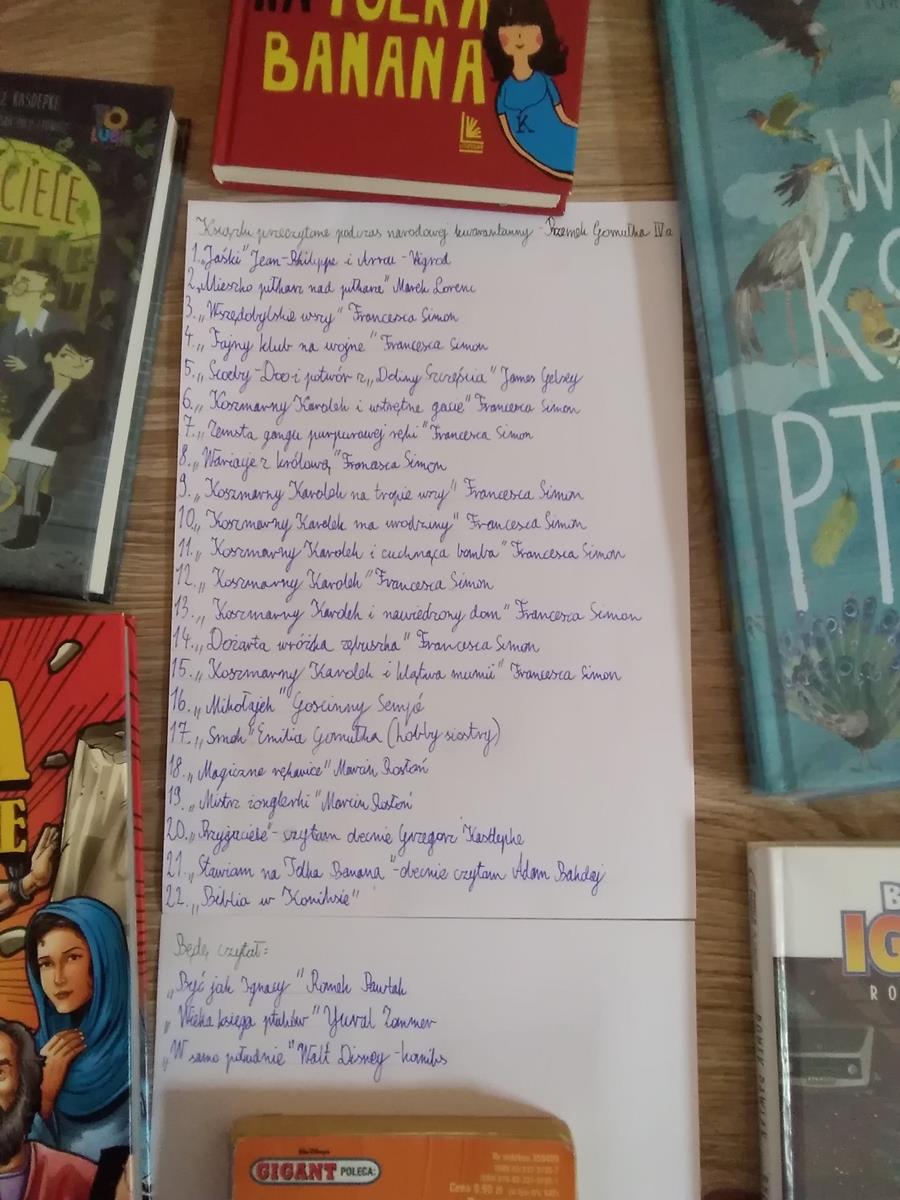 NA TOLKA
BANANA
K
LITERATURA
Z KASDEPKE
TO
LUBIĘ
CIELE
W
KS
PT
Książki przeczytane podczas narodowej kwarantanny - Przemek Gomułka IVa
1. „Jaśki" Jean-Philippe i Arrou-Vignod
2. „Mieszko piłkarz nad piłkarze" Marek Lorenc
3. „Wszędobylskie wszy" Francesca Simon
4. „Tajny klub na wojnie" Francesca Simon
5. „Scooby-Doo i potwór z „Doliny Szczęścia" James Gelsey
6. „Koszmarny Karolek i wstrętne gacie" Francesca Simon
7. „Zemsta gangu purpurowej ręki" Francesca Simon
8. „Wariacje z królową" Francesca Simon
9. „Koszmarny Karolek na tropie wszy" Francesca Simon
10. „Koszmarny Karolek ma urodziny" Francesca Simon
11. „Koszmarny Karolek i cuchnąca bomba" Francesca Simon
12. „Koszmarny Karolek" Francesca Simon
13. „Koszmarny Karolek i nawiedzony dom" Francesca Simon
14. „Dożarta wróżka zębuszka" Francesca Simon
15. „Koszmarny Karolek i klątwa mumii" Francesca Simon
16. „Mikołajek" Gościnny Sempé
17. „Smok" Emilia Gomułka (hobby siostry)
18. „Magiczne rękawice" Marcin Rosłoń
19. „Mistrz żonglerki" Marcin Rosłoń
20. „Przyjaciele" - czytam obecnie Grzegorz Kasdepke
21. „Stawiam na Tolka Banana" - obecnie czytam Adam Bahdaj
22. „Biblia w Komiksie"
Będę czytał:
„Być jak Ignacy" Romek Pawlak
„Wielka księga ptaków" Yuval Zommer
„W samo południe" Walt Disney - komiks
A
E
B
IG
RO
ROMEK PAWLAK
Walt Disney
GIGANT POLECA:
Nr indeksu 359409